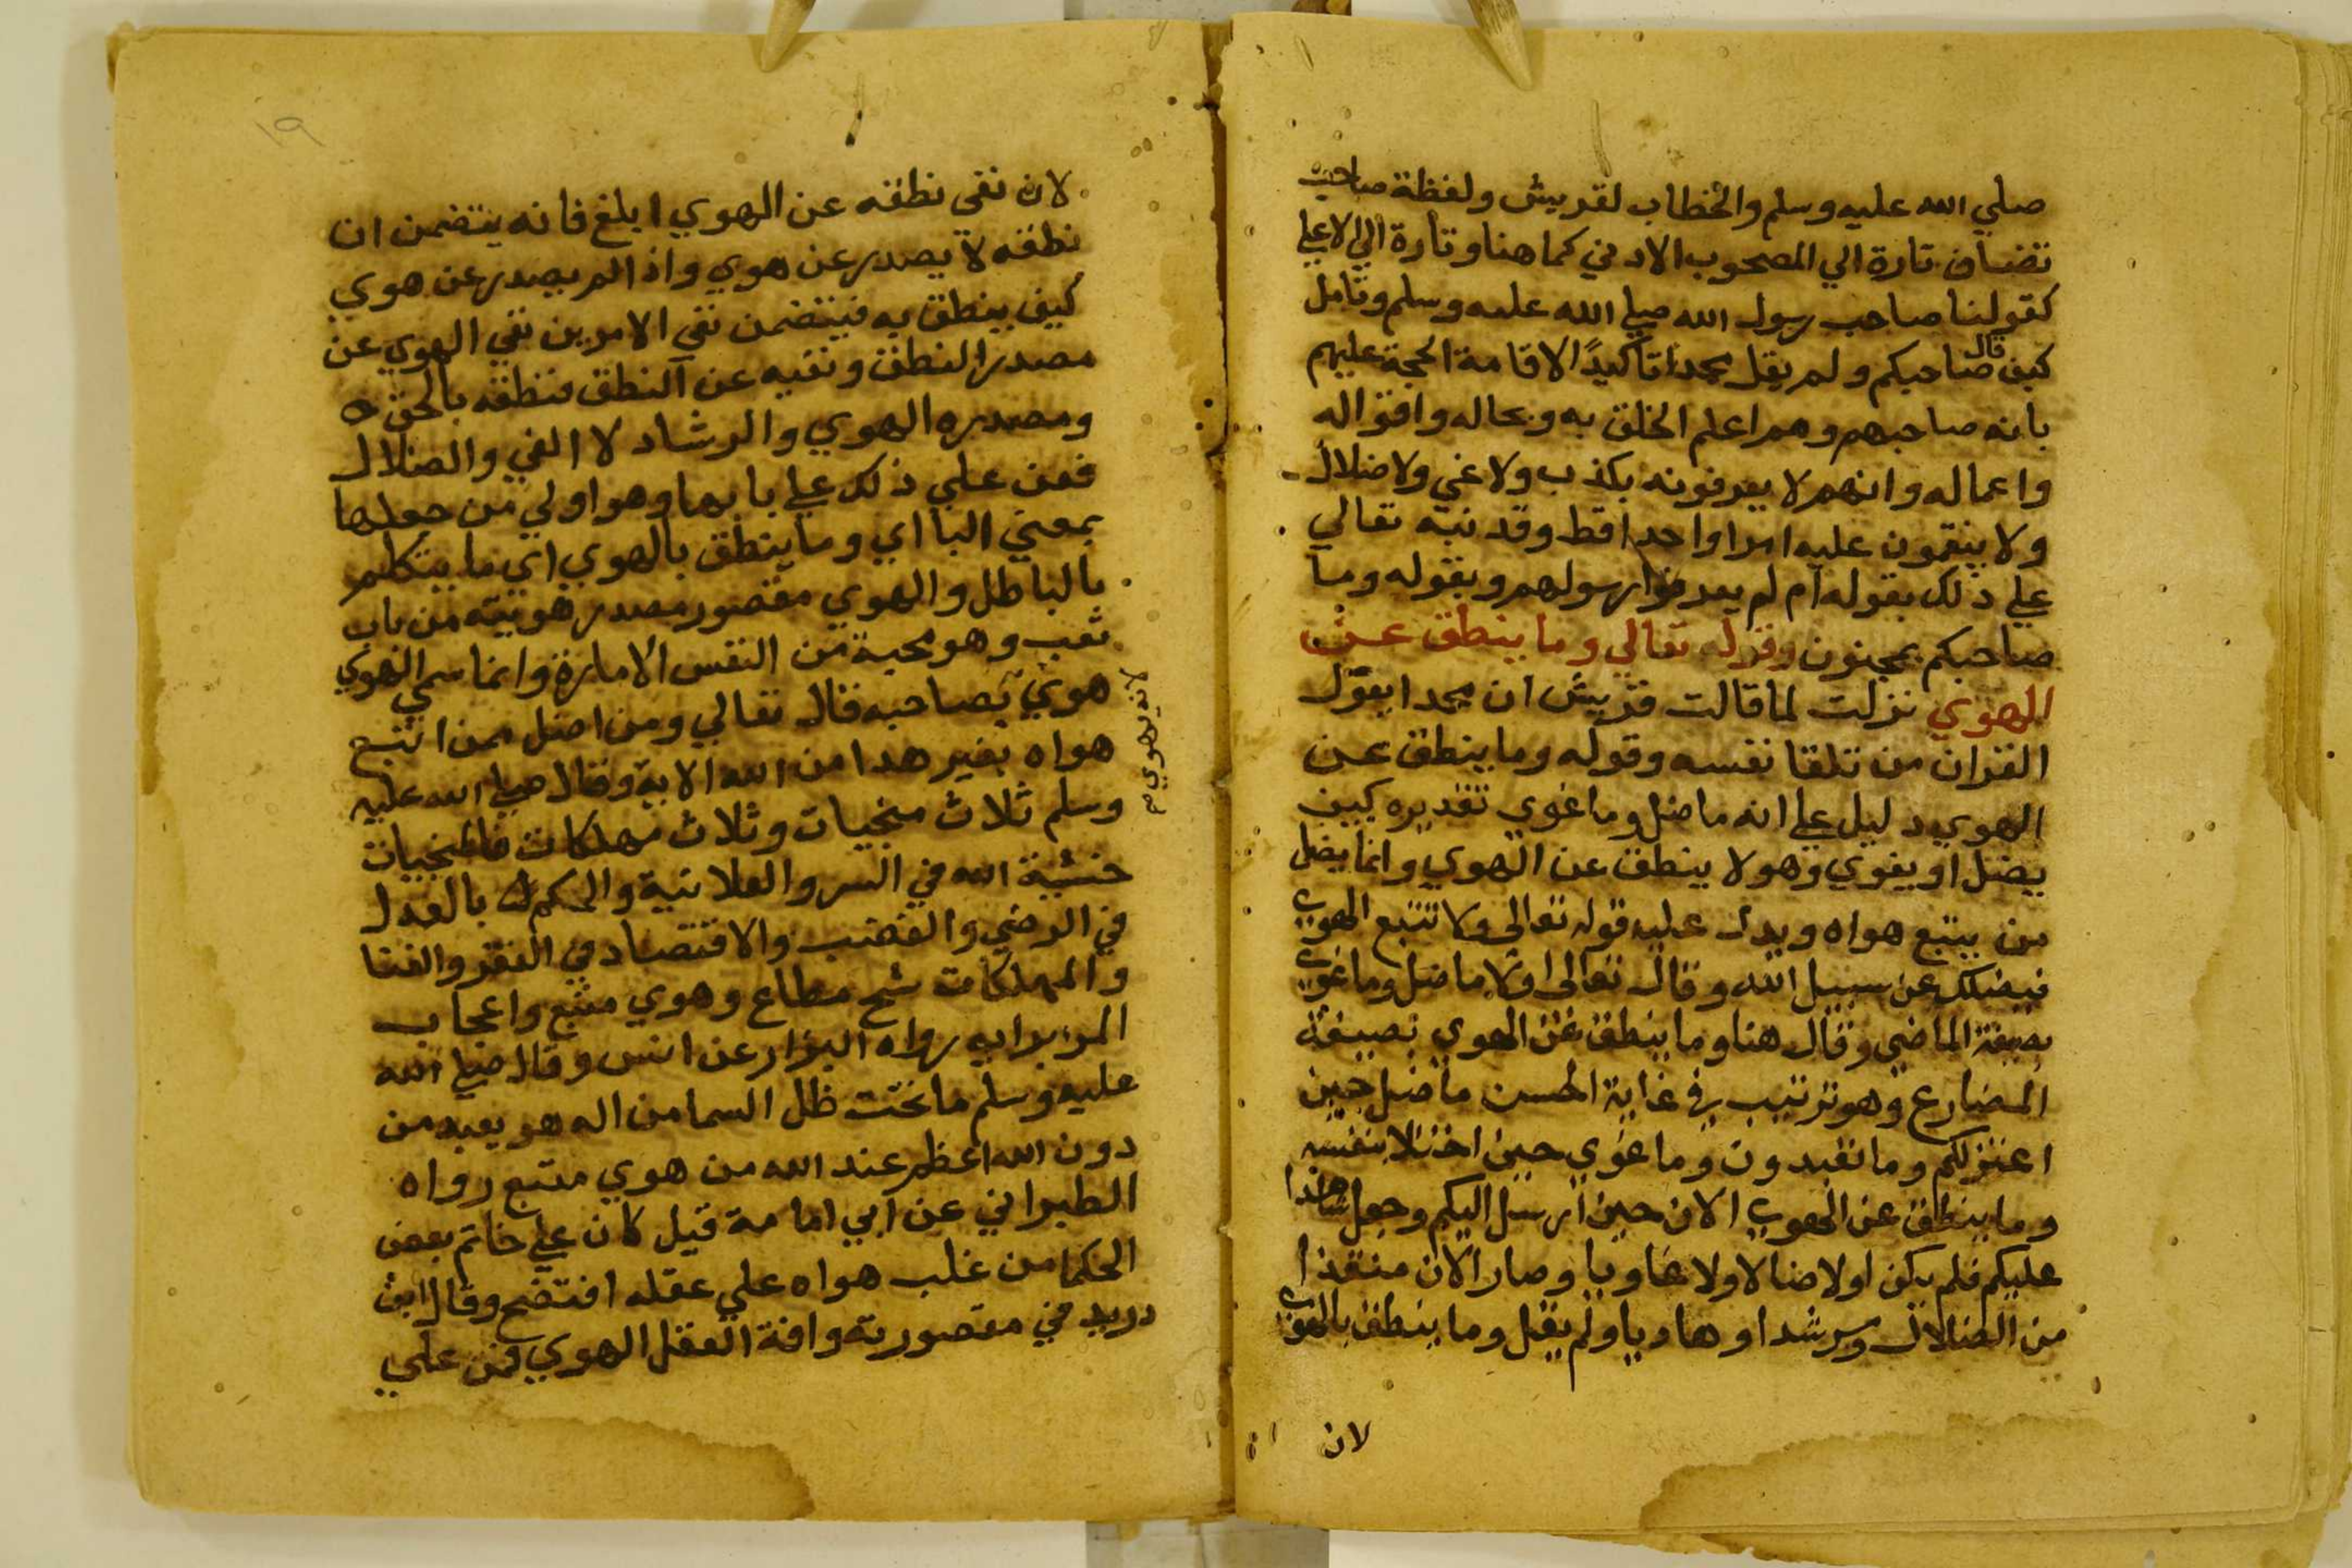 صلي الله عليه وسلم والخطاب لقريش ولفظة صاحب
تضاف تارة الي المصحوب الادني كما هنا وتارة الي الاعلي
كقولنا صاحب رسول الله صلي الله عليه وسلم وتامل
كيف قال صاحبكم ولم يقل محمدا تاكيدًا لاقامة الحجة عليهم
بانه صاحبهم وهم اعلم الخلق به وبحاله واقواله
واعماله وانهم لا يعرفونه بكذب ولا غي ولا ضلال
ولا ينقمون عليه امرا واحدا قط وقد نبه تعالي
علي ذلك بقوله ام لم يعرفوا رسولهم وبقوله وما
صاحبكم بمجنون وقوله تعالي وما ينطق عن
الهوي نزلت لما قالت قريش ان محمدا يقول
القران من تلقا نفسه وقوله وما ينطق عن
الهوي دليل علي انه ما ضل وما غوي تقديره كيف
يضل او يغوي وهو لا ينطق عن الهوي وانما يضل
من يتبع هواه ويدل عليه قوله تعالى ولا تتبع الهوي
فيضلك عن سبيل الله وقال تعالى اولا ما ضل وما غوي
بصيغة الماضي وقال هنا وما ينطق عن الهوي بصيغة
المضارع وهو ترتيب في غاية الحسن ما ضل حين
اعتزلكم وما تعبدون وما غوي حين اختلا بنفسه
وما ينطق عن الهوي الان حين ارسل اليكم وجعل شاهدا
عليكم فلم يكن اولا ضالا ولا غاويا وصار الان منقذا
من الضلال ومرشدا وهاديا ولم يقل وما ينطق بالهوي
لان
١٩
لان نفي نطقه عن الهوي ابلغ فانه يتضمن ان
نطقه لا يصدر عن هوي واذا لم يصدر عن هوي
كيف ينطق به فيتضمن نفي الامرين نفي الهوي عن
مصدر النطق ونفيه عن النطق فنطقه بالحق
ومصدره الهوي والرشاد لا الغي والضلال
فعن علي ذلك علي بابها وهو اولي من جعلها
بمعني البا اي وما ينطق بالهوي اي ما يتكلم
بالباطل والهوي مقصور مصدر هويته من باب
تعب وهو محبة من النفس الامارة وانما سمي الهوي
هوي لانه يهوي بصاحبه قال تعالي ومن اضل ممن اتبع
هواه بغير هدا من الله الاية وقال صلي الله عليه
وسلم ثلاث منجيات وثلاث مهلكات فالمنجيات
خشية الله في السر والعلانية والحكم بالعدل
في الرضي والغضب والاقتصاد في الفقر والغنا
والمهلكات شح مطاع وهوي متبع واعجاب
المرء برايه رواه البزار عن انس وقال صلي الله
عليه وسلم ما تحت ظل السما من اله هو يعبد من
دون الله اعظم عند الله من هوي متبع رواه
الطبراني عن ابي امامة قيل كان علي خاتم بعض
الحكما من غلب هواه علي عقله افتضح وقال ابن
دريد في مقصوريته وافة العقل الهوي فمن علي